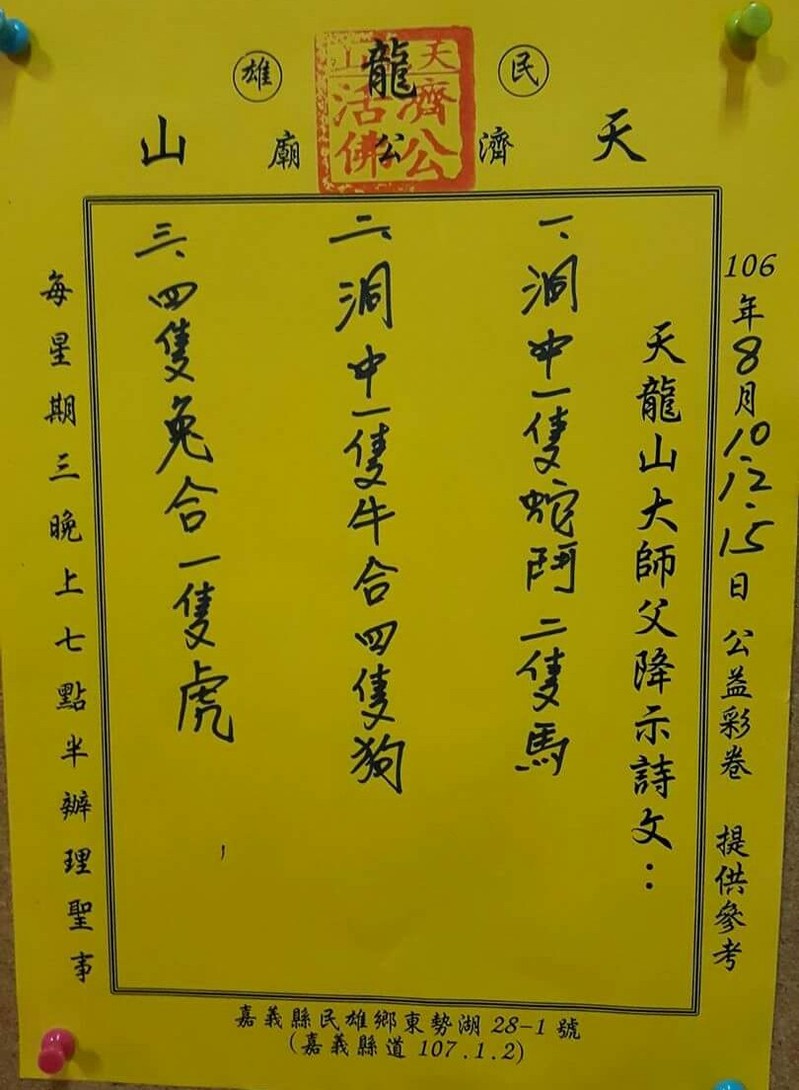 民雄
天龍山
濟公廟
天山
濟公
活佛
106年8月10.12.15日 公益彩卷 提供參考
天龍山大師父降示詩文：
一、洞中一隻蛇鬥二隻馬
二、洞中一隻牛合四隻狗
三、四隻兔合一隻虎
每星期三晚上七點半辦理聖事
嘉義縣民雄鄉東勢湖 28-1 號
(嘉義縣道 107.1.2)